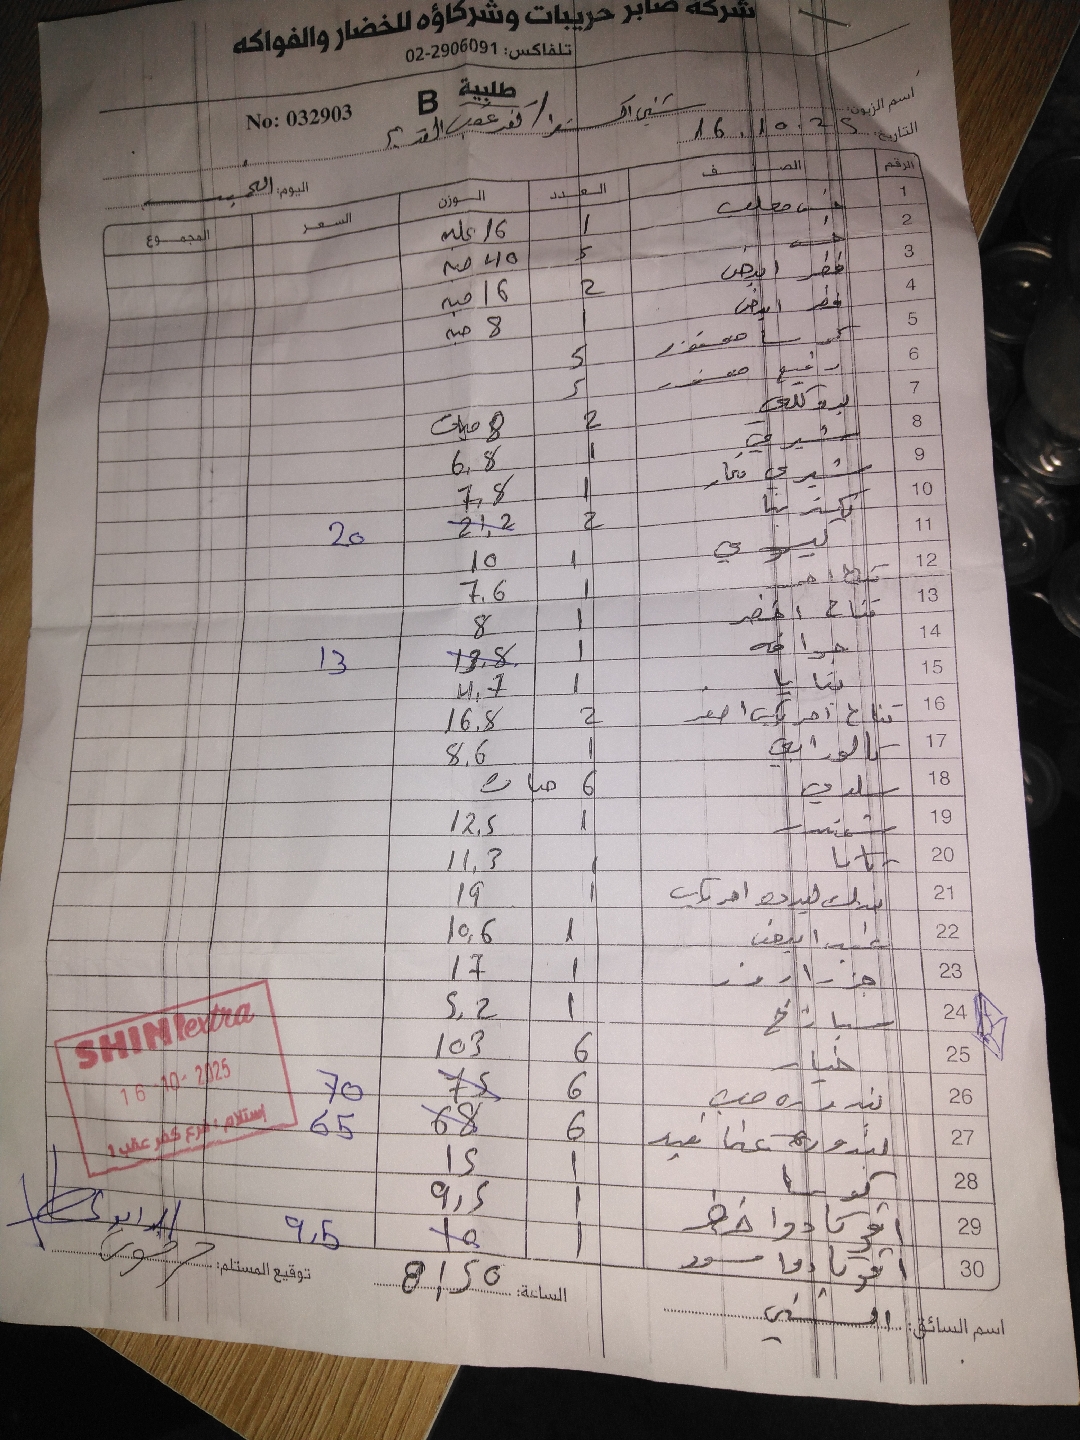 شركة صابر حريبات وشركاؤه للخضار والفواكه
تلفاكس: 02-2906091
طلبية B
No: 032903
اسم الزبون: شني اكسترا / كفر عقب القديم
التاريخ: 16.10.25
اليوم: الخميس
الرقم الصنف العدد الوزن السعر المجموع
1 خس معلب 1 16 علبه
2 خس 5 40 حبه
3 فطر ابيض 2 16 حبه
4 فطر ابيض 1 8 حبه
5 كوسا محفور 5
6 رفيع محفور 5
7 بروكلي 2 8 حبات
8 شيري 1 6,8
9 شيري 1 7,8
10 كستنا 2 21,2 20
11 كيوي 1 10
12 تفاح احمر 1 7,6
13 تفاح اخضر 1 8
14 جوافه 1 13,8 13
15 بابايا 1 4,7
16 تفاح امريكي اصفر 2 16,8
17 كالورابي 1 8,6
18 سلري 6 حبات
19 شمندر 1 12,5
20 بطاطا 1 11,3
21 امريكي 1 19
22 عنب ابيض 1 10,6
23 جزر 1 17
24 سبانخ 1 5,2
25 خيار 6 103
26 بندوره حب 6 75 70
27 بندوره عناقيد 6 68 65
28 كوسا 1 15
29 افوكادوا خضر 1 9,5
30 افوكادوا اسود 1 10 9,5
SHINI extra
16-10-2025
إستلام : فرع كفر عقب 2
اسم السائق:
الساعة: 8,50
توقيع المستلم: